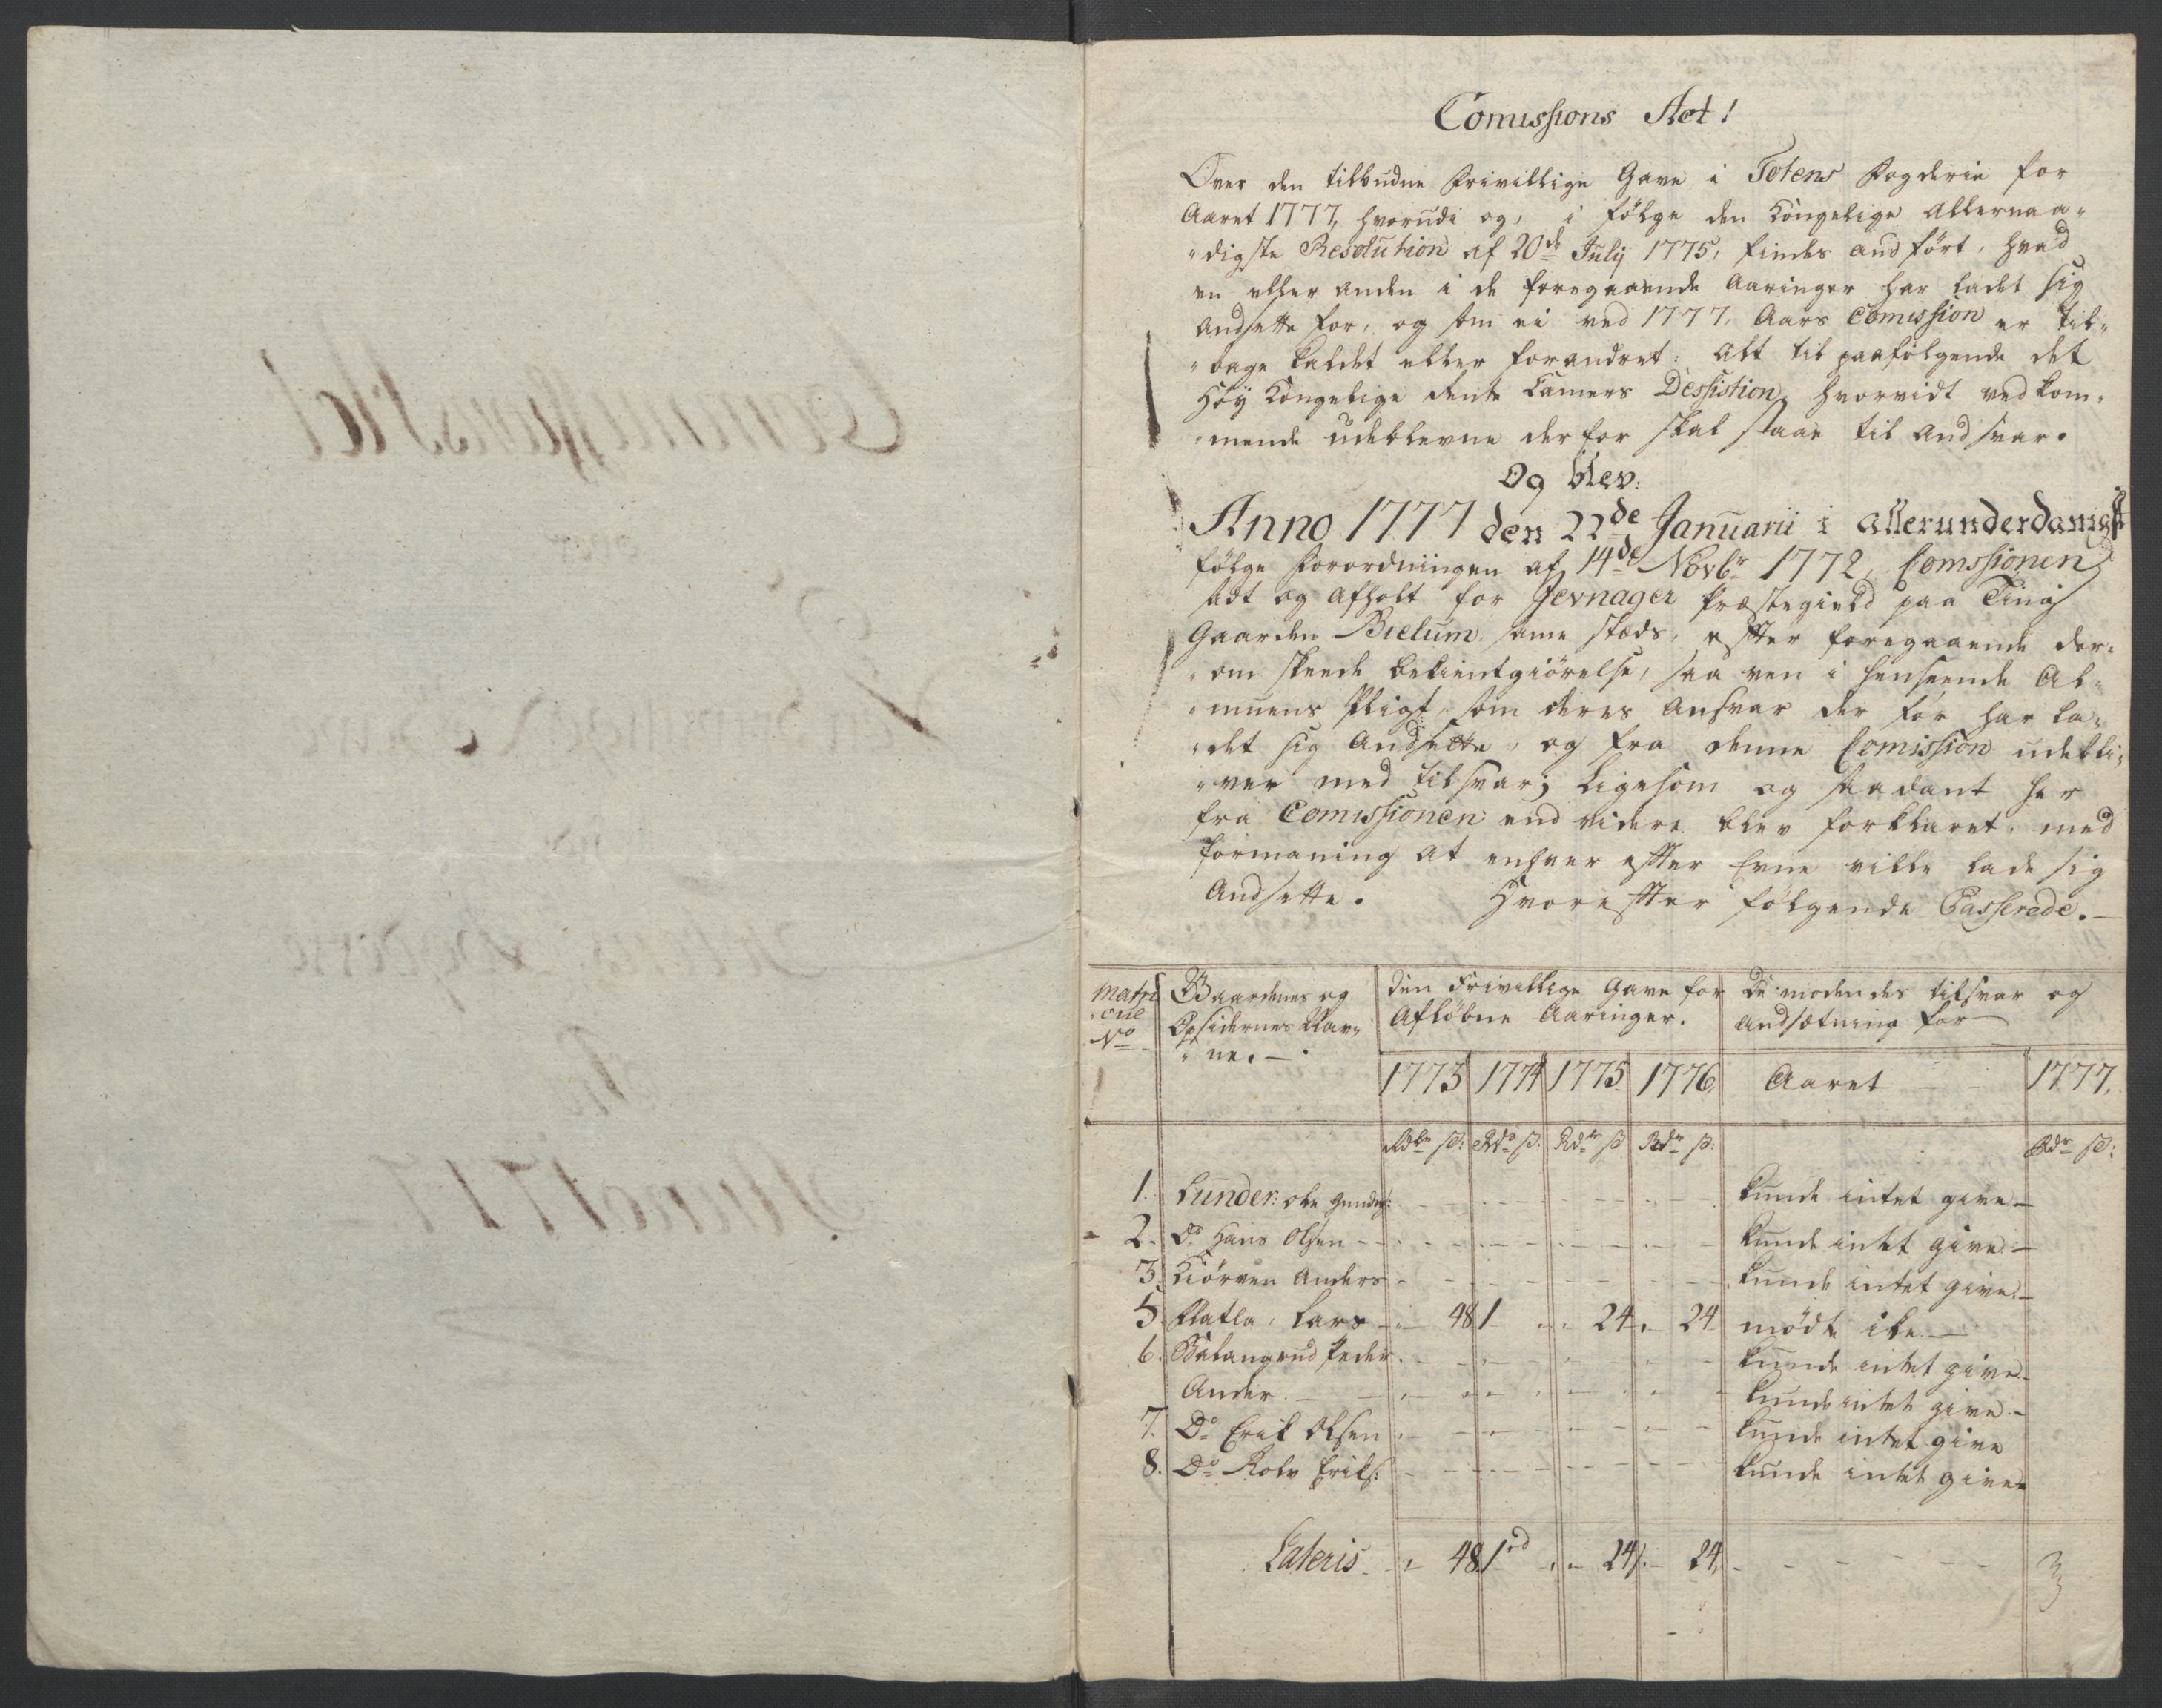 Comissions Act!
Over den tilbudne Frivillige Gave i Totens Fogderie for
Aaret 1777, hvorudi og, i følge den Kongelige Allernaa-
digste Resolution af 20de July 1775, findes andført, hvad
en eller anden i de foregaaende Aaringer har ladet sig
Andsette for, og som ei ved 1777, Aars Comission er til-
bage kaldet eller forandret: Alt til paafølgende det
Høy Kongelige Rente Camers Dessistion, hvorvidt vedkom-
mende udeblevne derfor skal staae til Andsvar.
Og blev:
Anno 1777 den 22de Januarii i allerunderdanigst
følge Forordningen af 14de Novbr 1772, Comssionen
sadt og afholt for Jevnager Præstegield paa Ting
Gaarden Bielum samestæds, efter foregaaende der-
om skeede bekientgiørelse, saa vel i henseende Al-
muens Pligt, som deres Ansvar der for har la-
det sig Andsette, og fra denne Comission udebli-
ver med tilsvar; ligesom og saadant her
fra Comissionen end videre blev forklaret, med
formaning at enhver efter Evne ville lade sig
Andsette. Hvorefter følgende Passerede.
Matri
cule
No
Gaardenes og
Opsidernes Nav-
ne.
Den Frivillige Gave for
Afløbne Aaringer.
De mødendes tilsvar og
Andsætning for
1773 1774 1775 1776 Aaret 1777.
Rdlr ß: Rdr ß: Rdr ß Rdr ß: Rdr ß:
1. Lunder: Ole kunde intet give
2. Do Hans Olsen kunde intet give
3. Kiørven Anders kunde intet give
5. Flatla, Lars 48 1 24 24 mødte ike
6. Balangrud Peder kunde intet give
Ander kunde intet give
7. Do Erik Olsen kunde intet give
8. Do Rolv Eriks: kunde intet give
Lateris 48 1 24 24